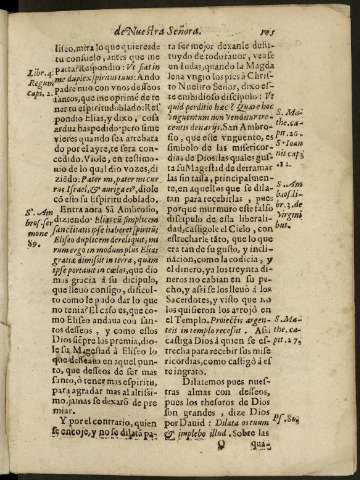 de Nuestra Señora.
105
liseo, mira lo que quieres de
tu consuelo, antes que me
parta: Respondiò: Vt fiat in
me duplex spiritus tuus: Ando
padre mio con vnos desseos
tener tu espiritu doblado. Res
pondiò Elias, y dixo, cosa
ardua has pedido: pero si me
vieres quando sea arrebata
do por el ayre, te serà con-
cedido. Viole, en testimo-
nio de lo qual dio vozes, di
ziẽdo: Pater mi, pater mi cur
rus Israel, & auriga eius, diole
cõ esto su Espiritu doblado.
Entra aora S. Ambrosio,
diziendo: Eliseo duplicem dereliquit, mi
rum ergo in modum plus Elias
gratiæ dimisit in terra, quàm
ipse portauit in cælos, que dio
mas gracia à su dicipulo,
que lleuò consigo, dificul-
to: como le pudo dar lo que
no tenia? El caso es, que co-
mo Eliseo andaua con san-
tos desseos, y como estos
Dios siẽpre los premia, dio-
le su Magestad à Eliseo lo
que desseaua en aquel pun-
to, que deseos de ser mas
santo, ò tener mas espiritu,
para agradar mas al altissi-
mo, jamas se dexarõ de pre
miar.
Y por el contrario, quien
se encoje, y no se dilata pa-
Libr. 4.
Regum
cap. 2.
S. Am
bros. ser
mone
89.
ra ser mejor dexanse desti-
tuydo de todo fauor, vease
un Iudas, quando la Magda
lena vngio los pies à Chris-
to Nuestro Señor, dixo es-
te embidioso discipulo: Vt
quid perditio hæc? Quare hoc
vnguentum non venditur tre-
centis denarijs. San Ambro-
sio, que este vnguento, es
simbolo de las misericor-
dias de Dios las quales gus-
ta su Magestad de derramar
las sin assa, principalmen-
te, en aquellos que se dila-
tan para recebirlas, pues
porque murmurò este falso
discipulo de esta liberali-
dad, castigole el Cielo, con
estrecharle tãto, que lo que
era tan de su gusto, y incli-
nacion, como la codicia, y
el dinero, ya los treynta di-
neros no cabian en su pe-
cho, y assi se los lleuò à los
Sacerdotes, y visto que no
los quisieron los arrojò en
el Templo. Proiectis argen-
teis in templo recessit. Assi
castiga Dios à quien se es-
trecha para recebir sus mise
ricordias, como castigò à es
te ingrato.
Dilatemos pues nues-
tras almas con desseos,
pues los thesoros de Dios
son grandes, dize Dios
por Dauid: Dilata os tuum
& implebo illud. Sobre las
Q
qua-
S. Ma-
the. ca-
pit. 26.
S. Ioan
nis cap.
12.
S. Am
bros. li-
br. 2. de
Virgini
but.
S. Ma-
the. ca-
pit. 27.
Ps. 80.